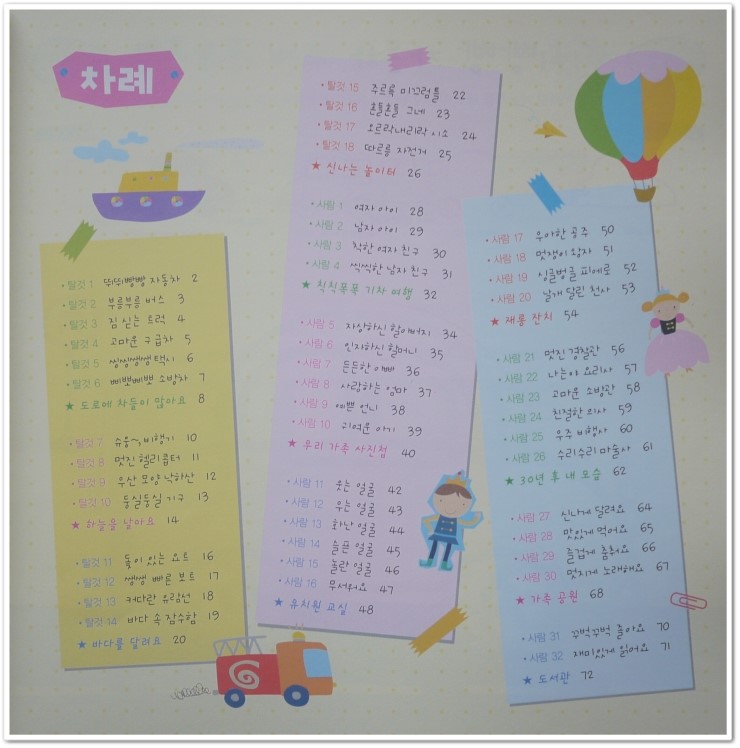 차례
• 탈것 1 뛰뛰빵빵 자동차 2
• 탈것 2 부릉부릉 버스 3
• 탈것 3 짐 싣는 트럭 4
• 탈것 4 고마운 구급차 5
• 탈것 5 씽씽쌩쌩 택시 6
• 탈것 6 삐뽀삐뽀 소방차 7
★ 도로에 차들이 많아요 8
• 탈것 7 슈웅~ 비행기 10
• 탈것 8 멋진 헬리콥터 11
• 탈것 9 우산 모양 낙하산 12
• 탈것 10 둥실둥실 기구 13
★ 하늘을 날아요 14
• 탈것 11 돛이 있는 요트 16
• 탈것 12 쌩쌩 빠른 보트 17
• 탈것 13 커다란 유람선 18
• 탈것 14 바다 속 잠수함 19
★ 바다를 달려요 20
• 탈것 15 주르륵 미끄럼틀 22
• 탈것 16 흔들흔들 그네 23
• 탈것 17 오르락내리락 시소 24
• 탈것 18 따르릉 자전거 25
★ 신나는 놀이터 26
• 사람 1 여자 아이 28
• 사람 2 남자 아이 29
• 사람 3 착한 여자 친구 30
• 사람 4 씩씩한 남자 친구 31
★ 칙칙폭폭 기차 여행 32
• 사람 5 자상하신 할아버지 34
• 사람 6 인자하신 할머니 35
• 사람 7 든든한 아빠 36
• 사람 8 사랑하는 엄마 37
• 사람 9 예쁜 언니 38
• 사람 10 귀여운 아기 39
★ 우리 가족 사진첩 40
• 사람 11 웃는 얼굴 42
• 사람 12 우는 얼굴 43
• 사람 13 화난 얼굴 44
• 사람 14 슬픈 얼굴 45
• 사람 15 놀란 얼굴 46
• 사람 16 무서워요 47
★ 유치원 교실 48
• 사람 17 우아한 공주 50
• 사람 18 멋쟁이 왕자 51
• 사람 19 싱글벙글 피에로 52
• 사람 20 날개 달린 천사 53
★ 재롱 잔치 54
• 사람 21 멋진 경찰관 56
• 사람 22 나는야 요리사 57
• 사람 23 고마운 소방관 58
• 사람 24 친절한 의사 59
• 사람 25 우주 비행사 60
• 사람 26 수리수리 마술사 61
★ 30년 후 내 모습 62
• 사람 27 신나게 달려요 64
• 사람 28 맛있게 먹어요 65
• 사람 29 즐겁게 춤춰요 66
• 사람 30 멋지게 노래해요 67
★ 가족 공원 68
• 사람 31 꾸벅꾸벅 졸아요 70
• 사람 32 재미있게 읽어요 71
★ 도서관 72